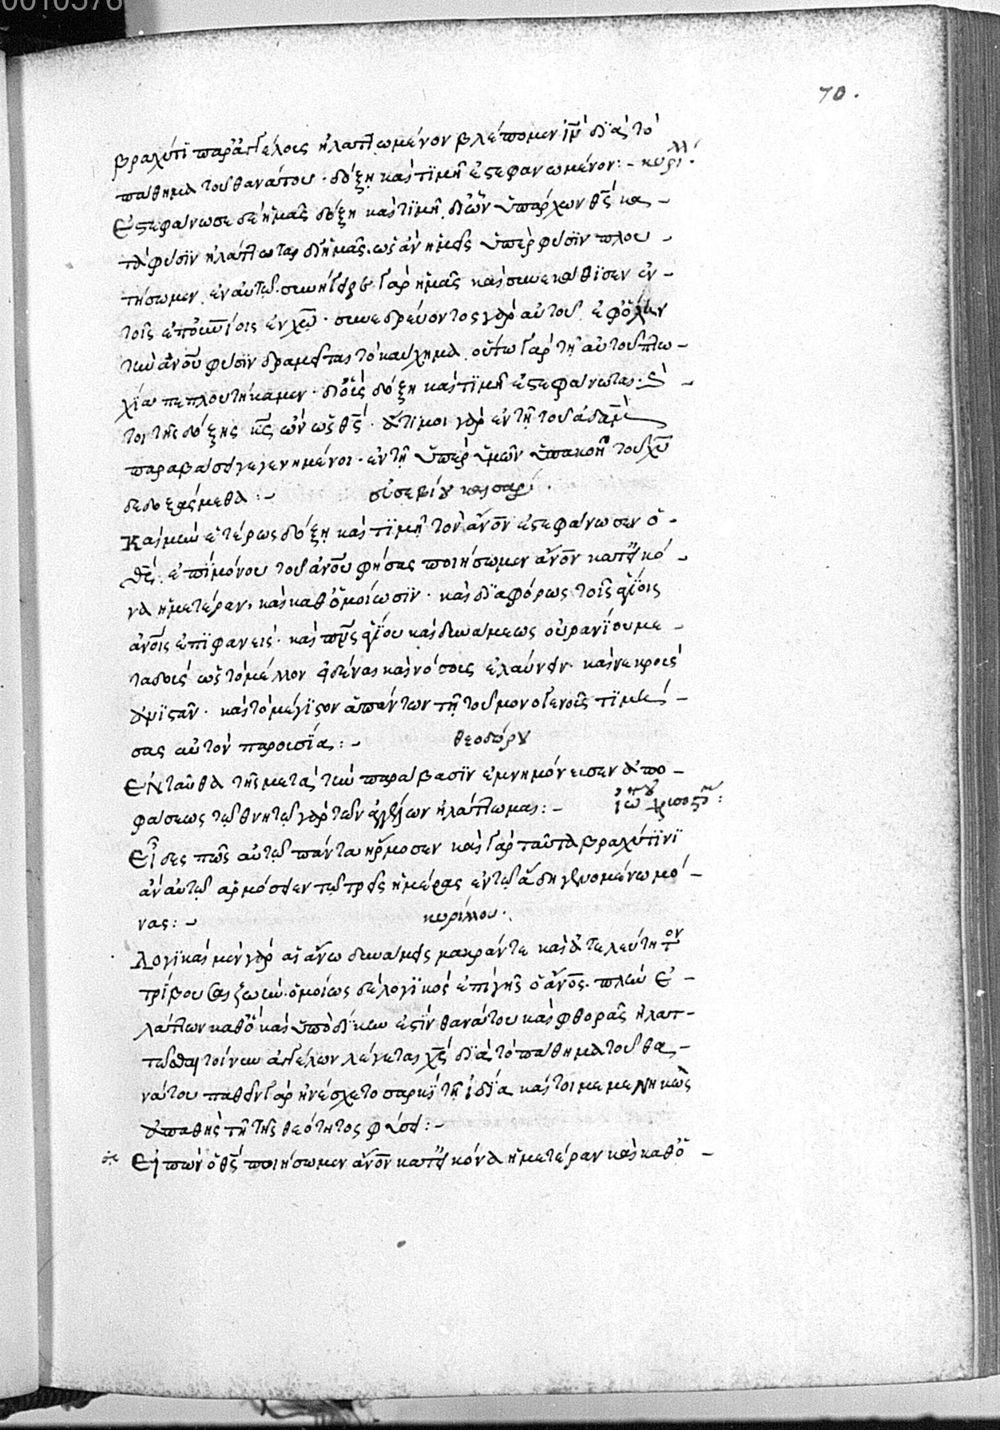 0010576
70.
βραχύτι παρ' ἀγγέλοις ἠλαττωμένον βλέπομεν ἰν̅ διὰ τὸ
πάθημα τοῦ θανάτου · δόξῃ καὶ τιμῇ ἐστεφανωμένον :- κυρίλλ
Ἐστεφάνωσε δὲ ἡμᾶς δόξῃ καὶ τιμῇ, δι' ὧν ὑπάρχων θς̅ κα-
τὰ φύσιν ἠλάττωται δι' ἡμᾶς, ὡς ἂν ἡμεῖς ὑπὲρ φύσιν πλου-
τήσωμεν ἐν αὐτῷ · συνήγειρε γὰρ ἡμᾶς καὶ συνεκάθισεν ἐν
τοῖς ἐπουνίοις ἐν χω̅ · συνεδρεύοντος γὰρ αὐτοῦ, ἐφ' ὅλην
τὴν ἀνου̅ φύσιν δραμεῖται τὸ καύχημα οὕτω γὰρ τῇ αὐτοῦ πτω-
χίᾳ πεπλουτήκαμεν · δι' οἷς δόξῃ καὶ τιμῇ ἐστεφάνωται
τοι τῆς δόξης κς̅ ὢν ὡς θς̅ · ἄτιμοι γὰρ ἐν τῇ τοῦ ἀδὰμ
παραβάσει γεγενημένοι · ἐν τῇ ὑπὲρ ὑμῶν ὑπακοῇ τοῦ χυ̅
δεδοξάσμεθα :-
εὐσεβίου καισαρ
Καὶ μὴν ἑτέρως δόξῃ καὶ τιμῇ τὸν ἀνον̅ ἐστεφάνωσεν ὁ
θς̅ · ἐπὶ μόνου τοῦ ἀνου̅ φήσας ποιήσωμεν ἀνον̅ κατ' εἰκό-
να ἡμετέραν, καὶ καθ' ὁμοίωσιν · καὶ διαφόρως τοῖς ἁγίοις
ἀνοις̅ ἐπιφανείς · καὶ πνς̅ ἁγίου καὶ δυνάμεως οὐρανίου με-
ταδοὺς εἰς τὸ μέλλον εἰδέναι καὶ νόσοις ἐλαύνειν · καὶ νεκροὺς
ἀνιστᾶν · καὶ τὸ μέγιστον ἁπάντων τῇ τοῦ μονογενοῦς τιμή-
σας αὐτὸν παρουσίᾳ :-
θεοδώρου
Ἐνταῦθα τῆς μετὰ τὴν παράβασιν ἐμνημόνευσεν ἀπο-
φάσεως τῷ θνητῷ γὰρ τῶν ἀγγέλων ἠλάττωμαι :-
ἰω̅ τοῦ χρισοστ :
Εἶδες πῶς αὐτῷ πάντα ἥρμοσεν καὶ γὰρ ταῦτα βραχύτι νῦ
ἂν αὐτῷ ἁρμόσειεν τῷ τρεῖς ἡμέρας ἐν τῷ ἅδῃ γενομένω μό-
νας :-
κυρίλλου ·
Λογικαὶ μὲν γὰρ αἱ ἄνω δυνάμεις μακράν τε καὶ ἀτελεύτητον
τρίβουσαι ζωήν · ὁμοίως δὲ λογικὸς ἐπὶ γῆς ὁ ἀνος̅ · πλὴν ἐ-
λάττων καθ' ὃ καὶ ὑπὸ δίκην ἐστὶν θανάτου καὶ φθορᾶς ἠλατ-
τῶσθαι τοίνυν ἀγγέλων λέγεται χς̅ διὰ τὸ πάθημα τοῦ θα-
νάτου παθεῖν γὰρ ἠνέσχετο σαρκὶ τῇ ἰδίᾳ καί τοι μεμενηκὼς
ἀπαθὴς τῇ τῆς θεότητος φύσει :-
Εἰπὼν ὁ θς̅ ποιήσωμεν ἀνον̅ κατ' εἰκόνα ἡμετέραν καὶ καθ' ὁ-